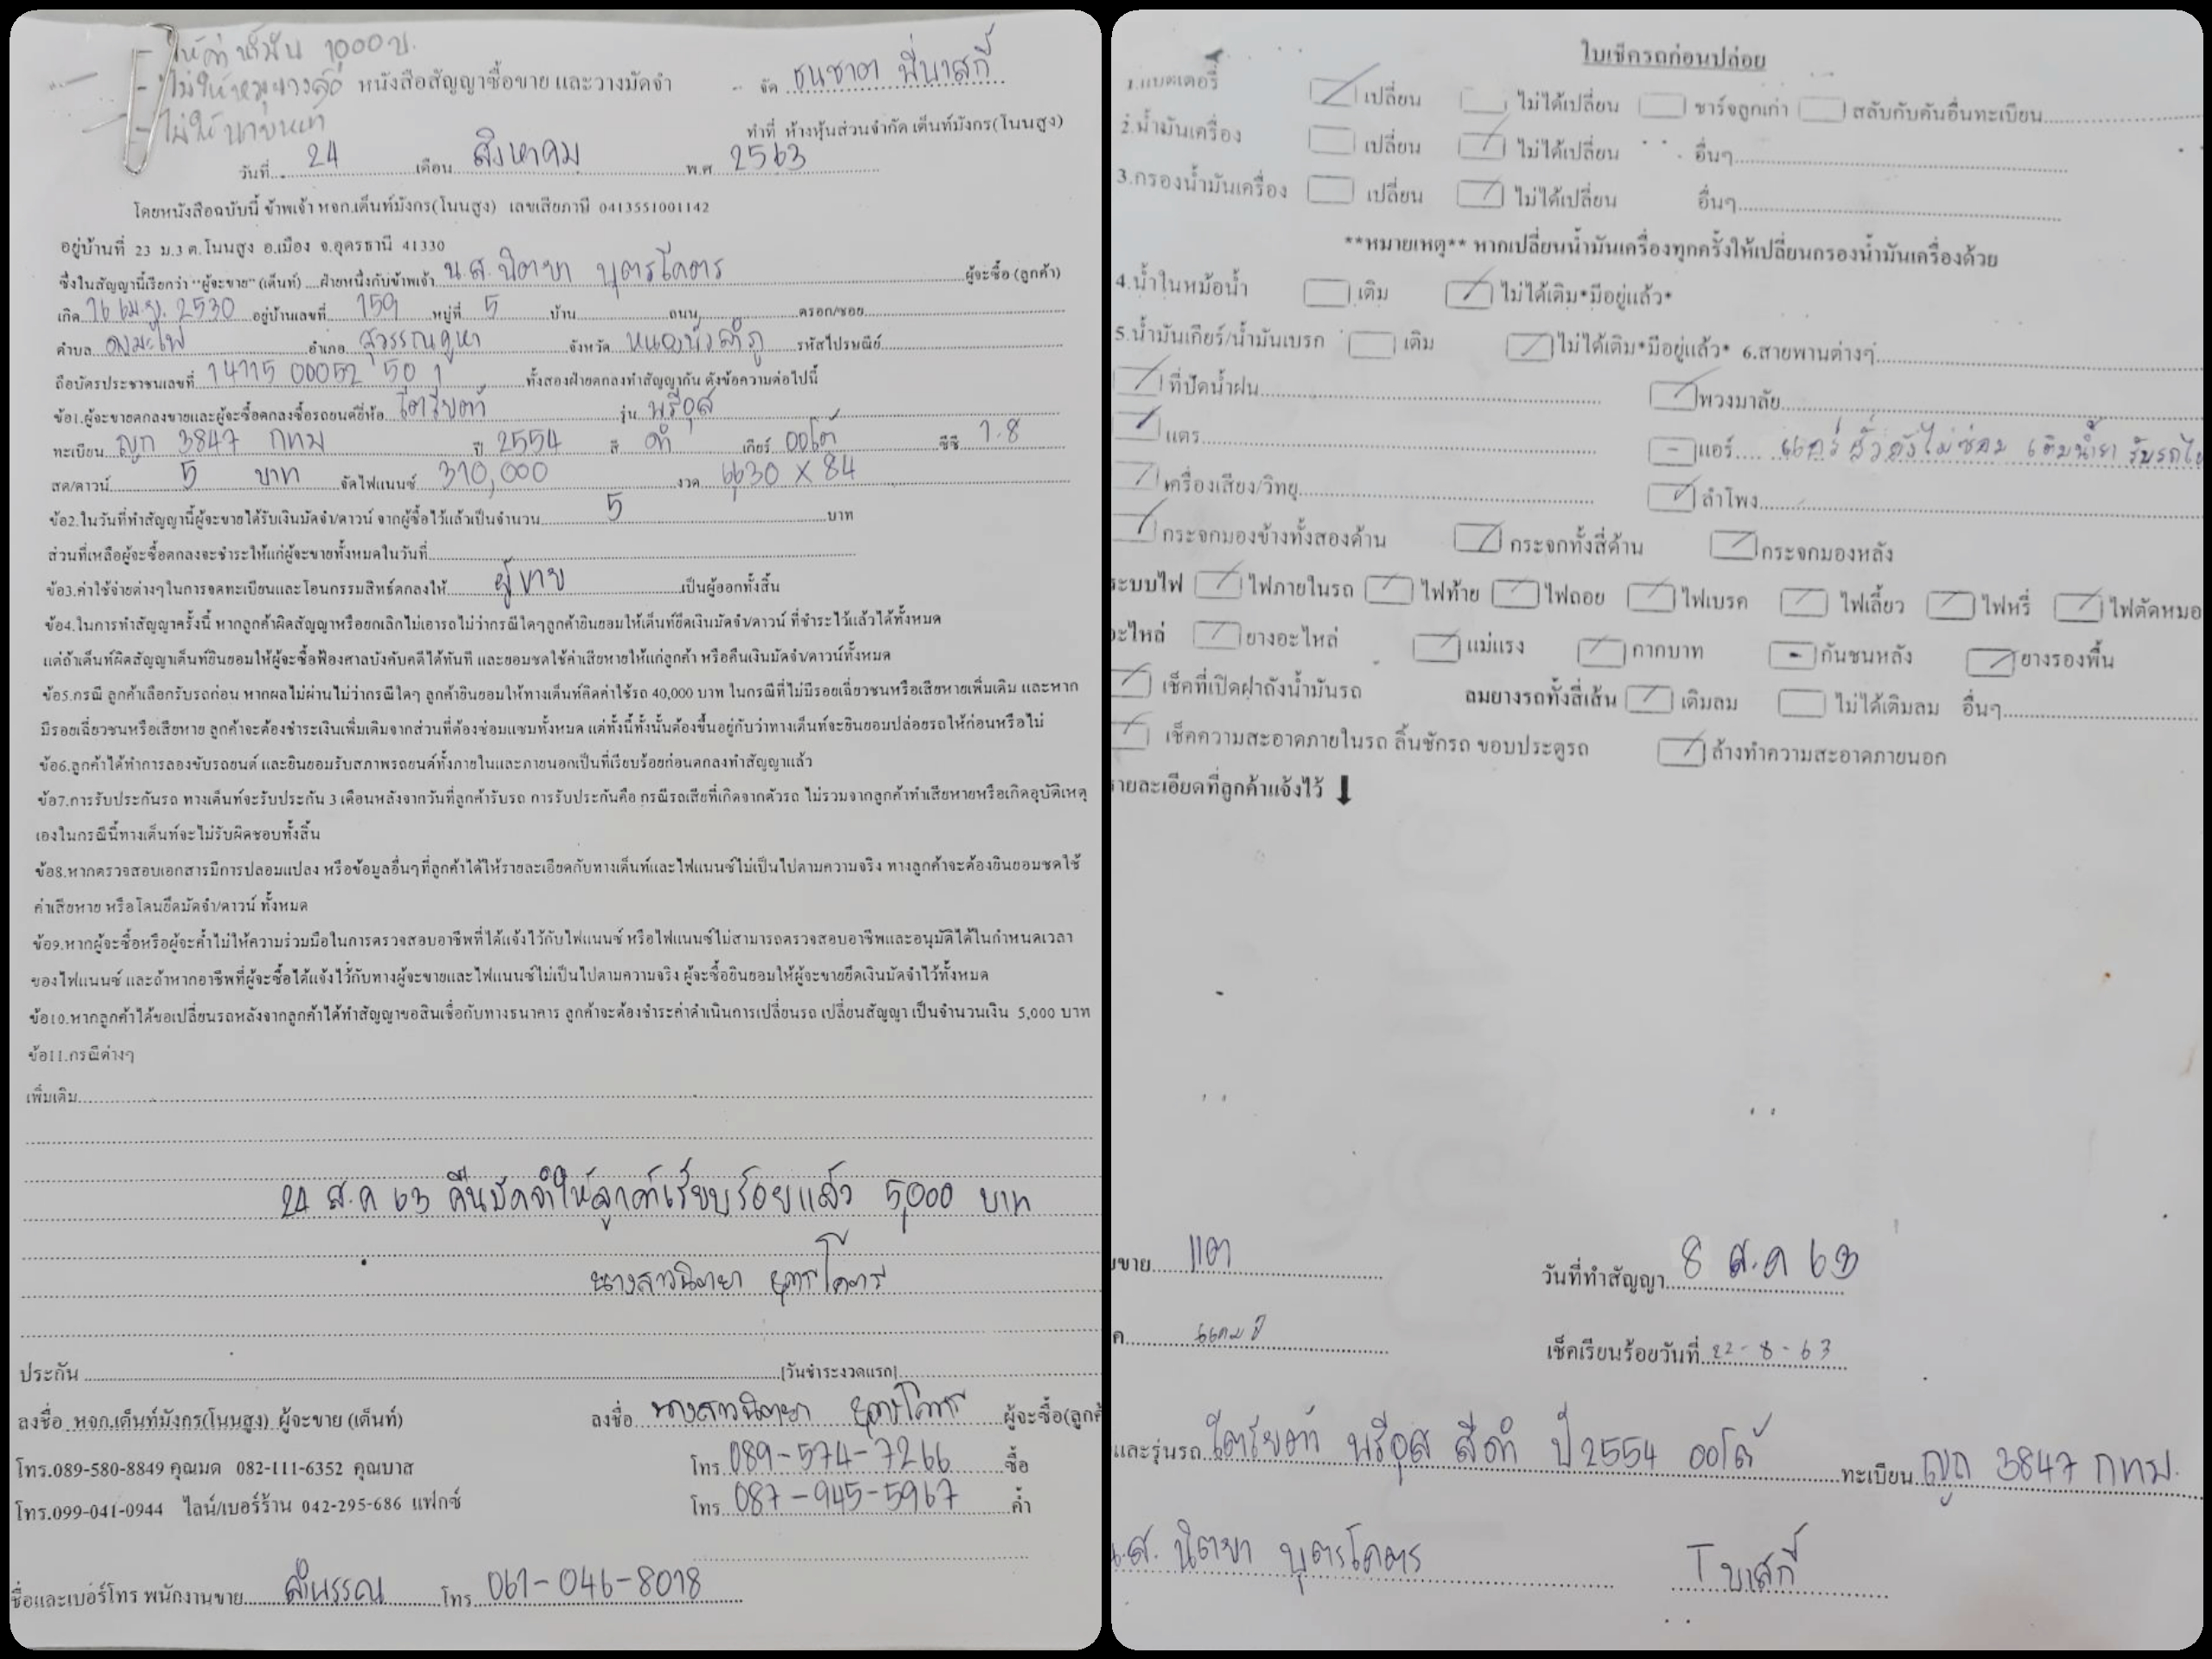 - ให้ค่าน้ำมัน 1000 บ.
- ไม่ให้
- ไม่ให้นายหน้า
หนังสือสัญญาซื้อขาย และวางมัดจำ
จัด ธนชาต พี่บาสกี้
ทำที่ ห้างหุ้นส่วนจำกัด เต็นท์มังกร(โนนสูง)
วันที่ 24 เดือน สิงหาคม พ.ศ 2563
โดยหนังสือฉบับนี้ ข้าพเจ้า หจก.เต็นท์มังกร(โนนสูง) เลขเสียภาษี 0413551001142
อยู่บ้านที่ 23 ม.3 ต.โนนสูง อ.เมือง จ.อุดรธานี 41330
ซึ่งในสัญญานี้เรียกว่า "ผู้จะขาย" (เต็นท์) ....ฝ่ายหนึ่งกับข้าพเจ้า น.ส. นิตยา บุตรโคตร ผู้จะซื้อ (ลูกค้า)
เกิด 16 เม.ย. 2530 อยู่บ้านเลขที่ 159 หมู่ที่ 5 บ้าน ถนน ตรอก/ซอย
ตำบล ดงมะไฟ อำเภอ สุวรรณคูหา จังหวัด หนองบัวลำภู รหัสไปรษณีย์
ถือบัตรประชาชนเลขที่ 14715 00052 50 1 ทั้งสองฝ่ายตกลงทำสัญญากัน ดังข้อความต่อไปนี้
ข้อ1.ผู้จะขายตกลงขายและผู้จะซื้อตกลงซื้อรถยนต์ยี่ห้อ โตโยต้า รุ่น พรีอุส
ทะเบียน ญก 3847 กทม ปี 2554 สี ดำ เกียร์ ออโต้ ซีซี 1.8
สด/ดาวน์ 5 บาท จัดไฟแนนซ์ 310,000 งวด 6630 X 84
ข้อ2.ในวันที่ทำสัญญานี้ผู้จะขายได้รับเงินมัดจำ/ดาวน์ จากผู้ซื้อไว้แล้วเป็นจำนวน 5 บาท
ส่วนที่เหลือผู้จะซื้อตกลงจะชำระให้แก่ผู้จะขายทั้งหมดในวันที่
ข้อ3.ค่าใช้จ่ายต่างๆในการจดทะเบียนและโอนกรรมสิทธ์ตกลงให้ ผู้ขาย เป็นผู้ออกทั้งสิ้น
ข้อ4.ในการทำสัญญาครั้งนี้ หากลูกค้าผิดสัญญาหรือยกเลิกไม่เอารถไม่ว่ากรณีใดๆลูกค้ายินยอมให้เต็นท์ยึดเงินมัดจำ/ดาวน์ ที่ชำระไว้แล้วได้ทั้งหมด
แต่ถ้าเต็นท์ผิดสัญญาเต็นท์ยินยอมให้ผู้จะซื้อฟ้องศาลบังคับคดีได้ทันที และยอมชดใช้ค่าเสียหายให้แก่ลูกค้า หรือคืนเงินมัดจำ/ดาวน์ทั้งหมด
ข้อ5.กรณี ลูกค้าเลือกรับรถก่อน หากผลไม่ผ่านไม่ว่ากรณีใดๆ ลูกค้ายินยอมให้ทางเต็นท์คิดค่าใช้รถ 40,000 บาท ในกรณีที่ไม่มีรอยเฉี่ยวชนหรือเสียหายเพิ่มเติม และหาก
มีรอยเฉี่ยวชนหรือเสียหาย ลูกค้าจะต้องชำระเงินเพิ่มเติมจากส่วนที่ต้องซ่อมแซมทั้งหมด แต่ทั้งนี้ทั้งนั้นต้องขึ้นอยู่กับว่าทางเต็นท์จะยินยอมปล่อยรถให้ก่อนหรือไม่
ข้อ6.ลูกค้าได้ทำการลองขับรถยนต์ และยินยอมรับสภาพรถยนต์ทั้งภายในและภายนอกเป็นที่เรียบร้อยก่อนตกลงทำสัญญาแล้ว
ข้อ7.การรับประกันรถ ทางเต็นท์จะรับประกัน 3 เดือนหลังจากวันที่ลูกค้ารับรถ การรับประกันคือ กรณีรถเสียที่เกิดจากตัวรถ ไม่รวมจากลูกค้าทำเสียหายหรือเกิดอุบัติเหตุ
เองในกรณีนี้ทางเต็นท์จะไม่รับผิดชอบทั้งสิ้น
ข้อ8.หากตรวจสอบเอกสารมีการปลอมแปลง หรือข้อมูลอื่นๆที่ลูกค้าได้ให้รายละเอียดกับทางเต็นท์และไฟแนนซ์ไม่เป็นไปตามความจริง ทางลูกค้าจะต้องยินยอมชดใช้
ค่าเสียหาย หรือโดนยึดมัดจำ/ดาวน์ ทั้งหมด
ข้อ9.หากผู้จะซื้อหรือผู้จะค้ำไม่ให้ความร่วมมือในการตรวจสอบอาชีพที่ได้แจ้งไว้กับไฟแนนซ์ หรือไฟแนนซ์ไม่สามารถตรวจสอบอาชีพและอนุมัติได้ในกำหนดเวลา
ของไฟแนนซ์ และถ้าหากอาชีพที่ผู้จะซื้อได้แจ้งไว้กับทางผู้จะขายและไฟแนนซ์ไม่เป็นไปตามความจริง ผู้จะซื้อยินยอมให้ผู้จะขายยึดเงินมัดจำไว้ทั้งหมด
ข้อ10.หากลูกค้าได้ขอเปลี่ยนรถหลังจากลูกค้าได้ทำสัญญาขอสินเชื่อกับทางธนาคาร ลูกค้าจะต้องชำระค่าดำเนินการเปลี่ยนรถ เปลี่ยนสัญญา เป็นจำนวนเงิน 5,000 บาท
ข้อ11.กรณีต่างๆ
เพิ่มเติม
24 ส.ค 63 คืนมัดจำให้ลูกค้าเรียบร้อยแล้ว 5,000 บาท
นางสาวนิตยา บุตรโคตร
ประกัน (วันชำระงวดแรก)
ลงชื่อ หจก.เต็นท์มังกร(โนนสูง) ผู้จะขาย (เต็นท์) ลงชื่อ นางสาวนิตยา บุตรโคตร ผู้จะซื้อ(ลูกค้
โทร.089-580-8849 คุณมด 082-111-6352 คุณบาส โทร 089-574-7266 ซื้อ
โทร.099-041-0944 ไลน์/เบอร์ร้าน 042-295-686 แฟกซ์ โทร 087-945-5967 ค้ำ
ชื่อและเบอร์โทร พนักงานขาย ลำพรรณ โทร 061-046-8018
ใบเช็ครถก่อนปล่อย
1.แบตเตอรี่ เปลี่ยน ไม่ได้เปลี่ยน ชาร์จลูกเก่า สลับกับคันอื่นทะเบียน
2.น้ำมันเครื่อง เปลี่ยน ไม่ได้เปลี่ยน อื่นๆ
3.กรองน้ำมันเครื่อง เปลี่ยน ไม่ได้เปลี่ยน อื่นๆ
**หมายเหตุ** หากเปลี่ยนน้ำมันเครื่องทุกครั้งให้เปลี่ยนกรองน้ำมันเครื่องด้วย
4.น้ำในหม้อน้ำ เติม ไม่ได้เติม*มีอยู่แล้ว*
5.น้ำมันเกียร์/น้ำมันเบรก เติม ไม่ได้เติม*มีอยู่แล้ว* 6.สายพานต่างๆ
ที่ปัดน้ำฝน พวงมาลัย
แตร แอร์ แอร์รั่วยังไม่ซ่อม เติมน้ำยา รับรถไป
เครื่องเสียง/วิทยุ ลำโพง
กระจกมองข้างทั้งสองด้าน กระจกทั้งสี่ด้าน กระจกมองหลัง
ระบบไฟ ไฟภายในรถ ไฟท้าย ไฟถอย ไฟเบรค ไฟเลี้ยว ไฟหรี่ ไฟตัดหมอ
อะไหล่ ยางอะไหล่ แม่แรง กากบาท กันชนหลัง ยางรองพื้น
เช็คที่เปิดฝาถังน้ำมันรถ ลมยางรถทั้งสี่เส้น เติมลม ไม่ได้เติมลม อื่นๆ
เช็คความสะอาดภายในรถ ลิ้นชักรถ ขอบประตูรถ ล้างทำความสะอาดภายนอก
รายละเอียดที่ลูกค้าแจ้งไว้
ขาย แต วันที่ทำสัญญา 8 ส.ค 63
ค แคมป์ เช็คเรียบร้อยวันที่ 22-8-63
และรุ่นรถ โตโยต้า พรีอุส สีดำ ปี 2554 ออโต้ ทะเบียน ญก 3847 กทม.
น.ส. นิตยา บุตรโคตร T บาสกี้